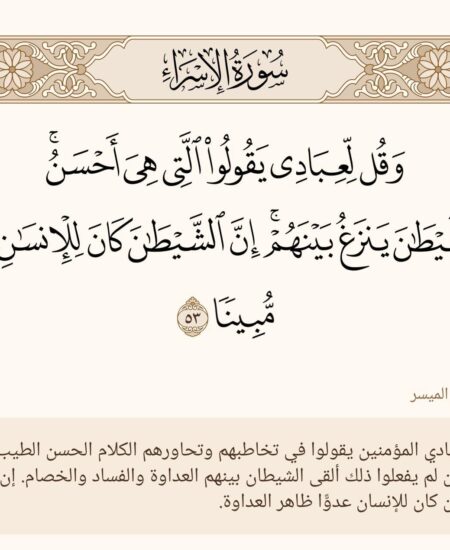 سُورَةُ الإِسْرَاءِ
وَقُل لِّعِبَادِى يَقُولُوا۟ ٱلَّتِى هِىَ أَحْسَنُ ۚ
يَنزَغُ بَيْنَهُمْ ۚ إِنَّ ٱلشَّيْطَـٰنَ كَانَ لِلْإِنسَـٰنِ
مُّبِينًا ٥٣
الميسر
المؤمنين يقولوا في تخاطبهم وتحاورهم الكلام الحسن الطيب
لم يفعلوا ذلك ألقى الشيطان بينهم العداوة والفساد والخصام. إن
كان للإنسان عدوًّا ظاهر العداوة.